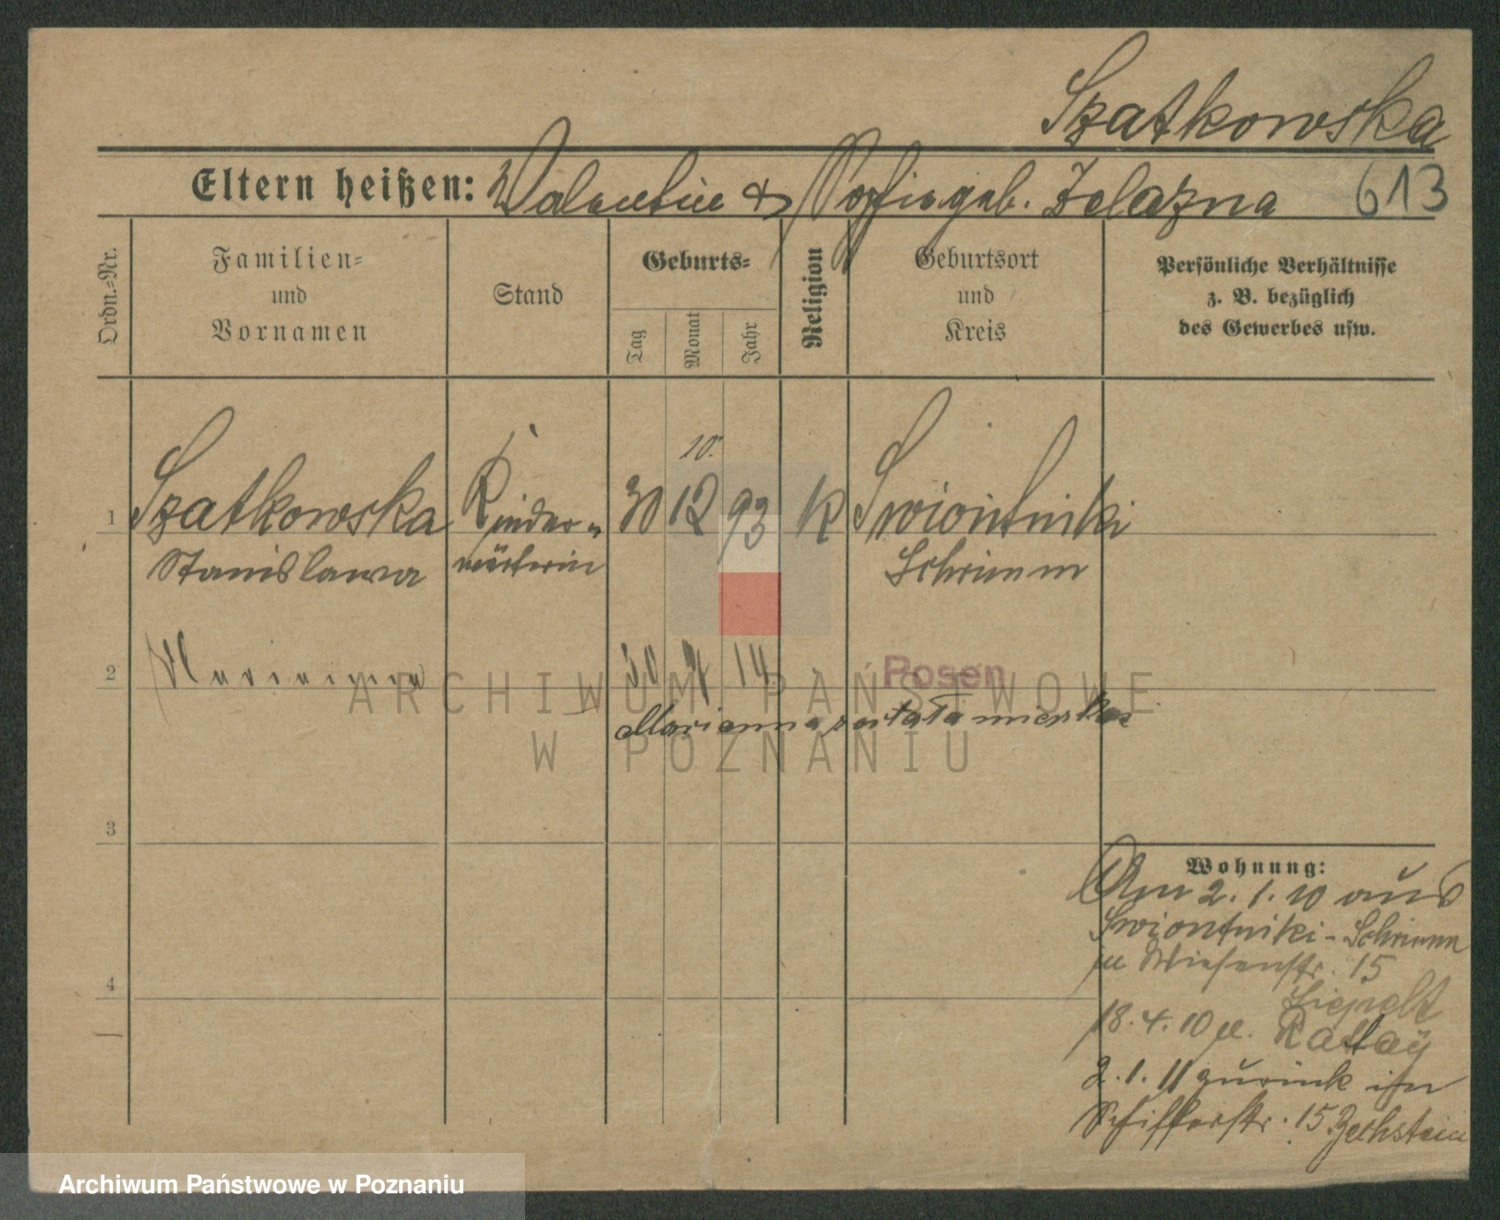 Szatkowska
Eltern heißen: Valentin & Sophie geb. Zelazna 613
Ordn.-Nr.
Familien-
und
Vornamen
Stand
Geburts-
Tag
Monat
Jahr
Religion
Geburtsort
und
Kreis
Persönliche Verhältnisse
z. B. bezüglich
des Gewerbes usw.
10.
1 Szatkowska Kinder- 30 12 93 K Swiontniki
Stanislawa wärterin Schrimm
2 Marianna 30 14 Posen
Marianna
3
4
Wohnung:
Am 2.1.10 aus
Swiontniki-Schrimm
zu Wiesenstr. 15
Liepelt
18.4.10 zu Rattay
2.1.11 zurück
Schifferstr. 15 Zechstein
ARCHIWUM PAŃSTWOWE
W POZNANIU
Archiwum Państwowe w Poznaniu